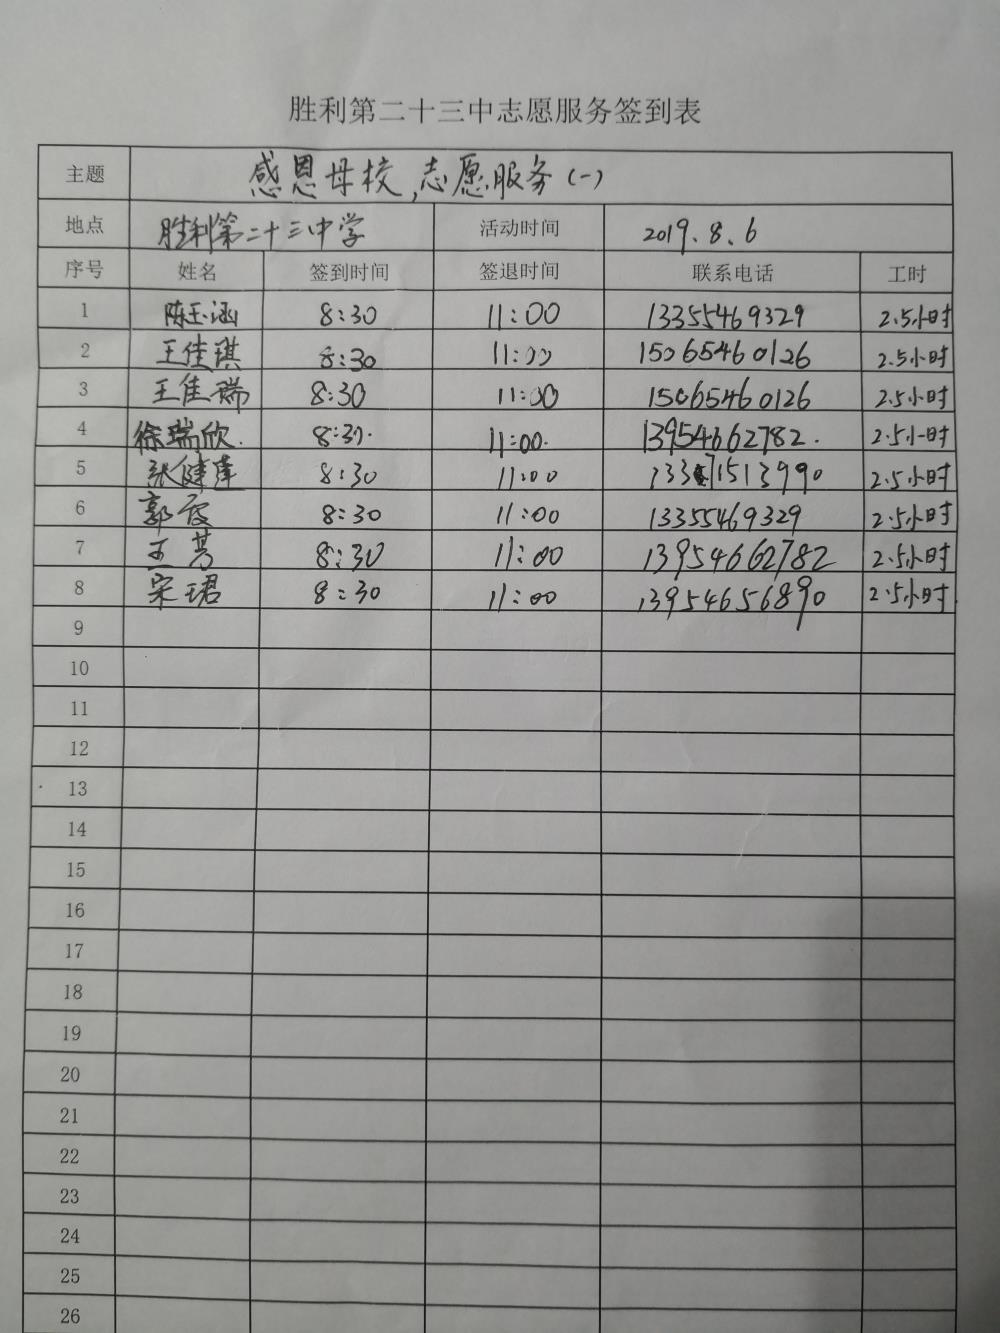 胜利第二十三中志愿服务签到表
主题 感恩母校,志愿服务(一)
地点 胜利第二十三中学 活动时间 2019.8.6
序号 姓名 签到时间 签退时间 联系电话 工时
1 陈玉涵 8:30 11:00 13355469329 2.5小时
2 王佳琪 8:30 11:00 15065460126 2.5小时
3 王佳瑞 8:30 11:00 15065460126 2.5小时
4 徐瑞欣. 8:30. 11:00. 13954662782. 2.5小时
5 张健 8:30 11:00 2.5小时
6 郭霞 8:30 11:00 13355469329 2.5小时
7 王芳 8:30 11:00 13954662782 2.5小时
8 宋珺 8:30 11:00 13954656890 2.5小时.
9
10
11
12
13
14
15
16
17
18
19
20
21
22
23
24
25
26